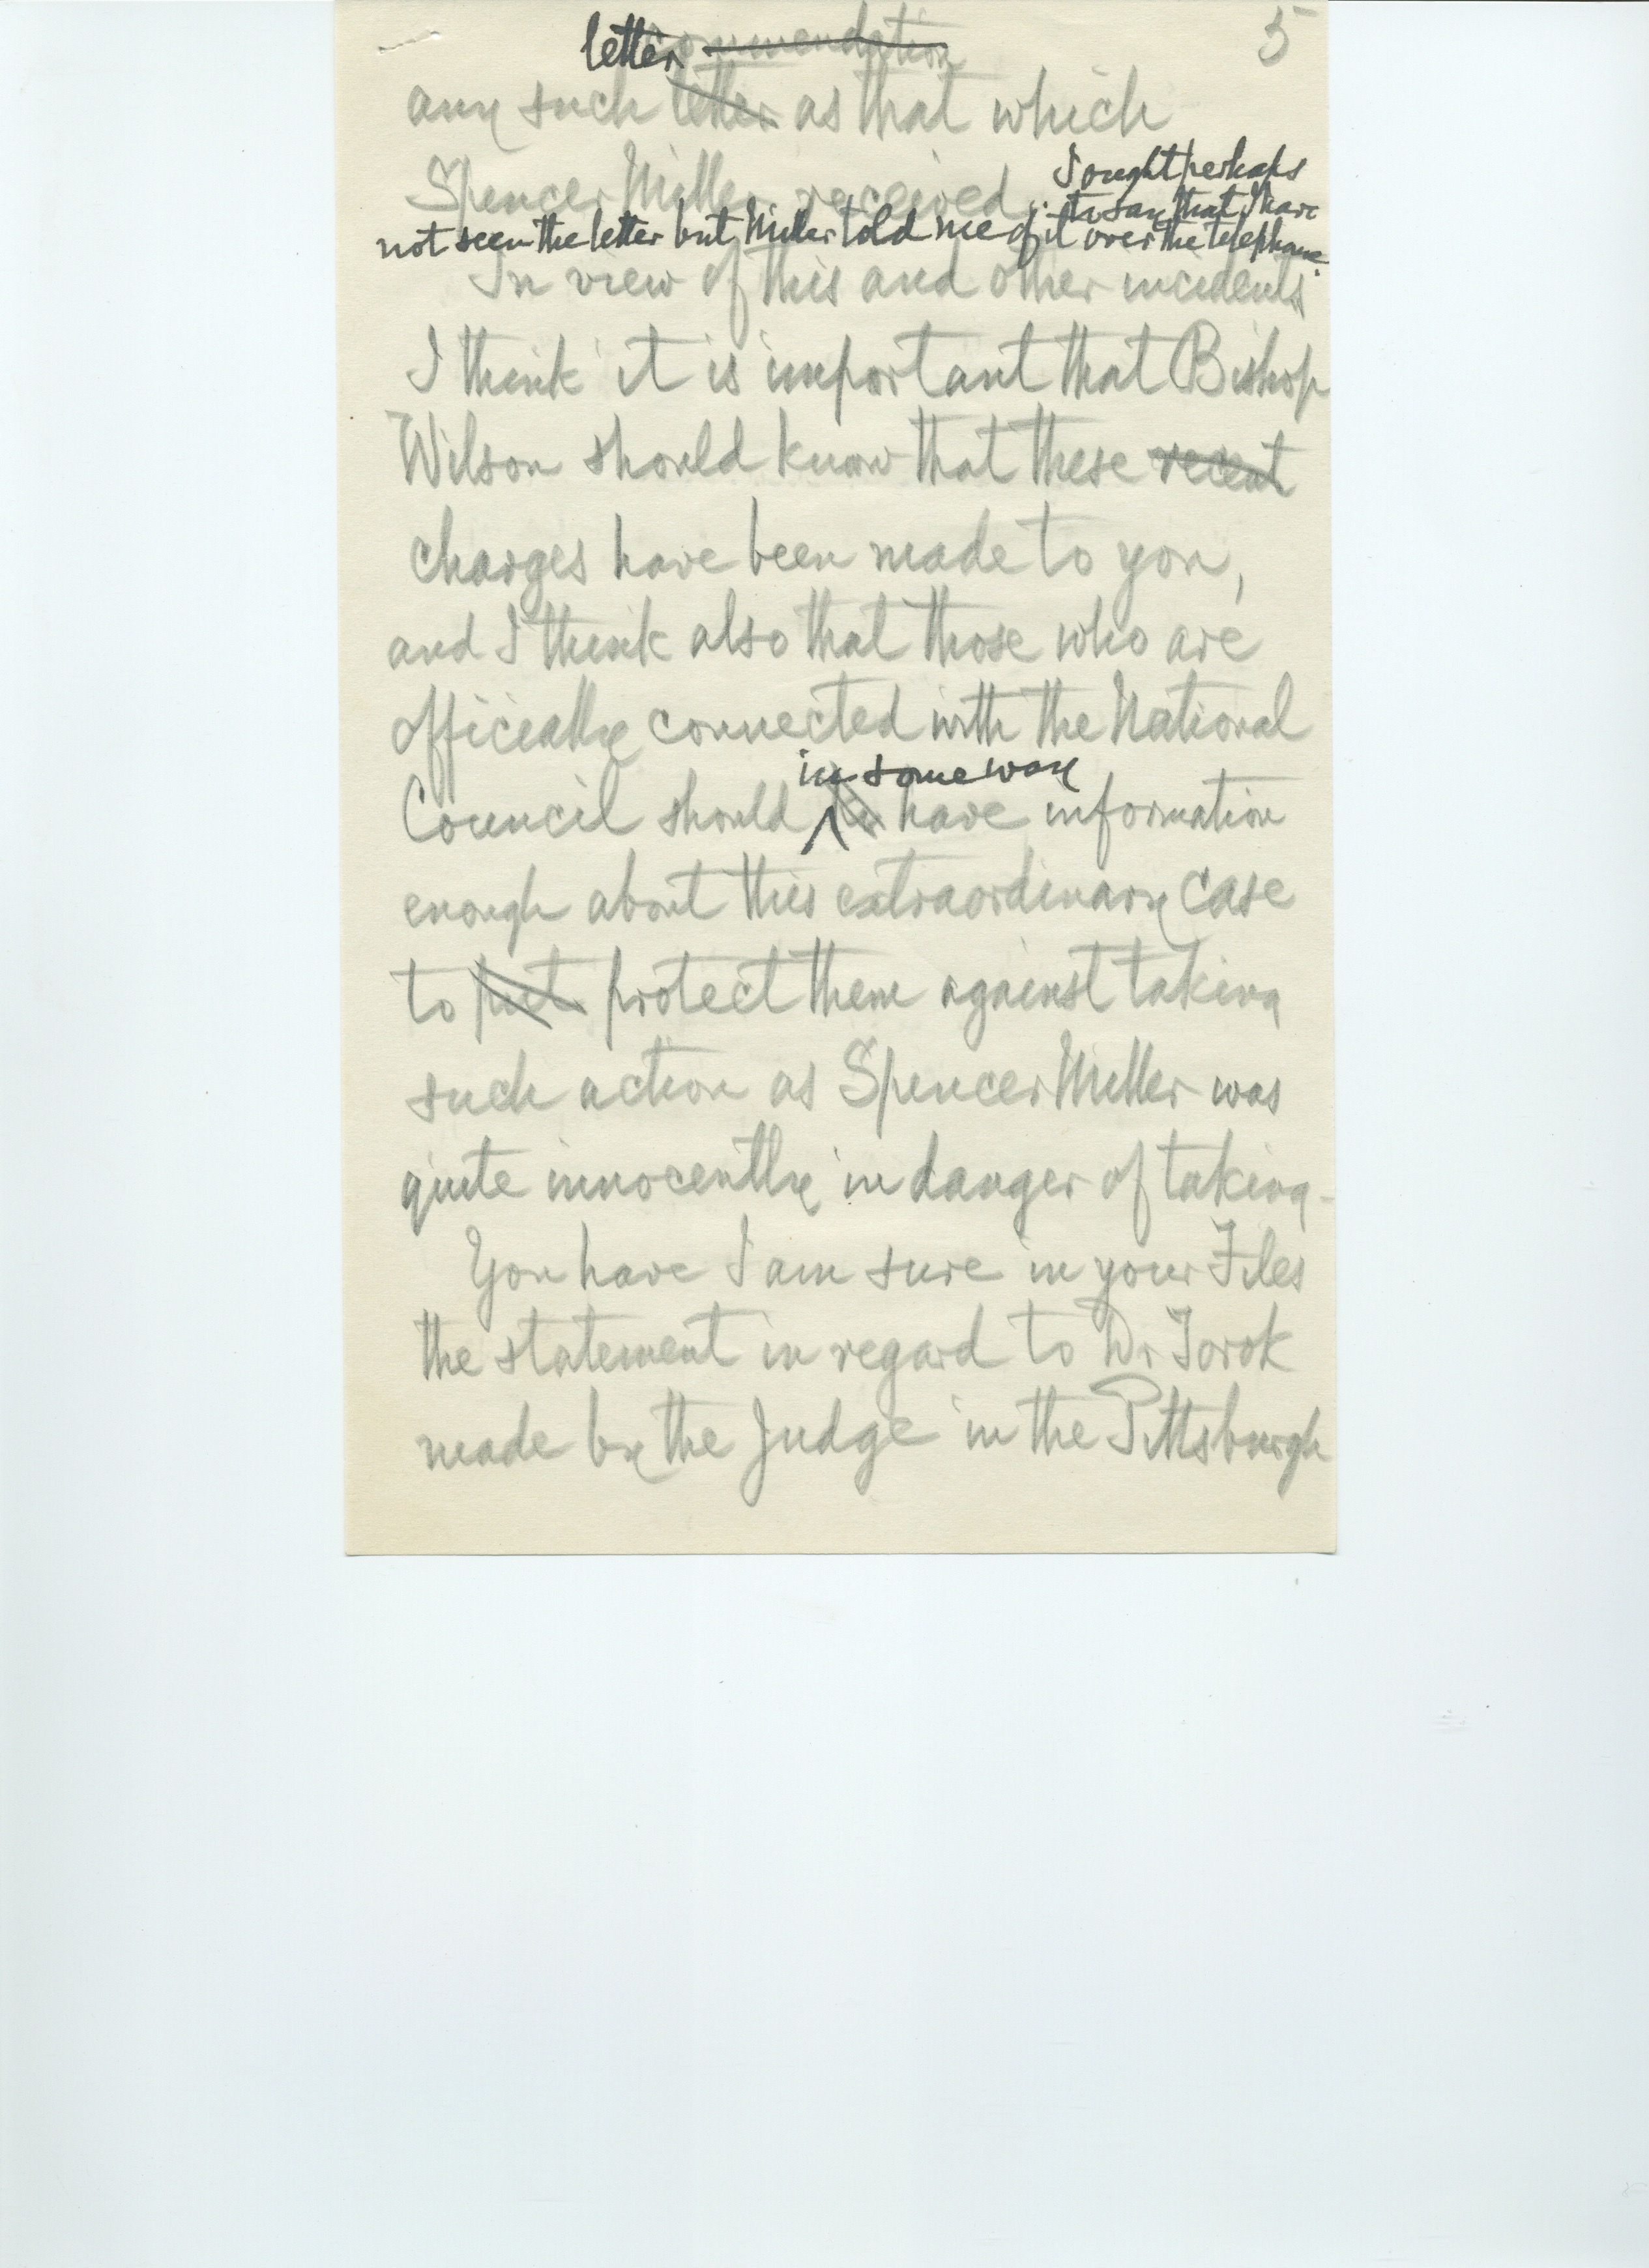 5
letter commendation
any such letter as that which
Spencer Miller received. I ought perhaps
to say that I have
not seen the letter but Miller told me of it over the telephone.
In view of this and other incidents
I think it is important that Bishop
Wilson should know that these recent
charges have been made to you,
and I think also that those who are
officially connected with the National
in some way
Council should have information
enough about this extraordinary case
to put protect them against taking
such action as Spencer Miller was
quite innocently in danger of taking-
You have I am sure in your Files
the statement in regard to Dr Torok
made by the Judge in the Pittsburgh